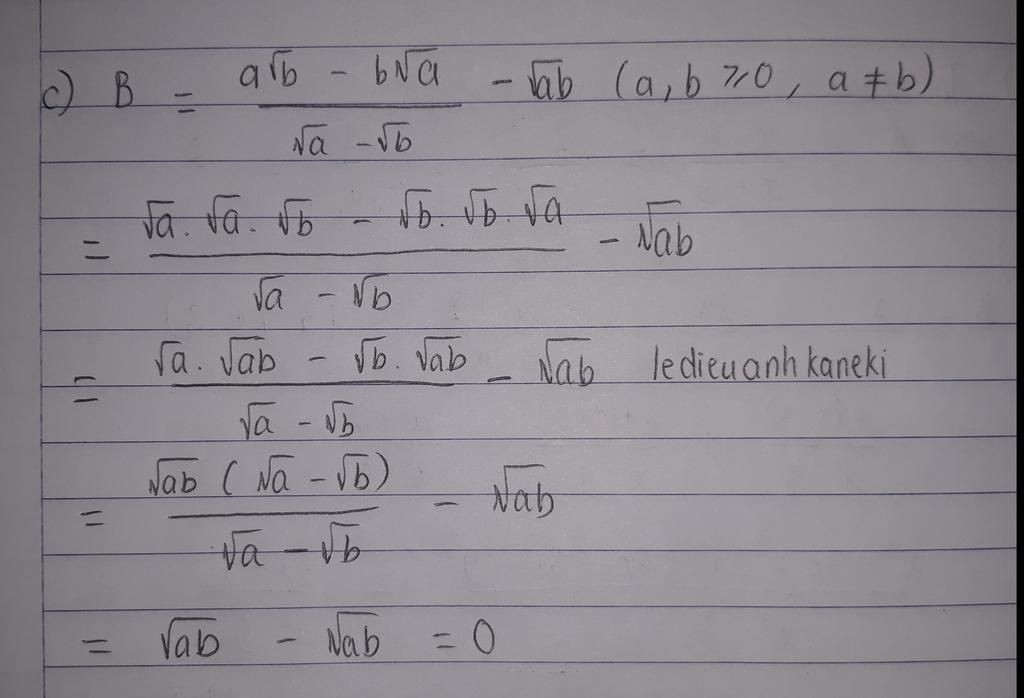 c) B = (a√b - b√a) / (√a - √b) - √ab (a, b ⩾ 0, a ≠ b)
= (√a . √a . √b - √b . √b . √a) / (√a - √b) - √ab
= (√a . √ab - √b . √ab) / (√a - √b) - √ab ledieuanhkaneki
= √ab (√a - √b) / (√a - √b) - √ab
= √ab - √ab = 0